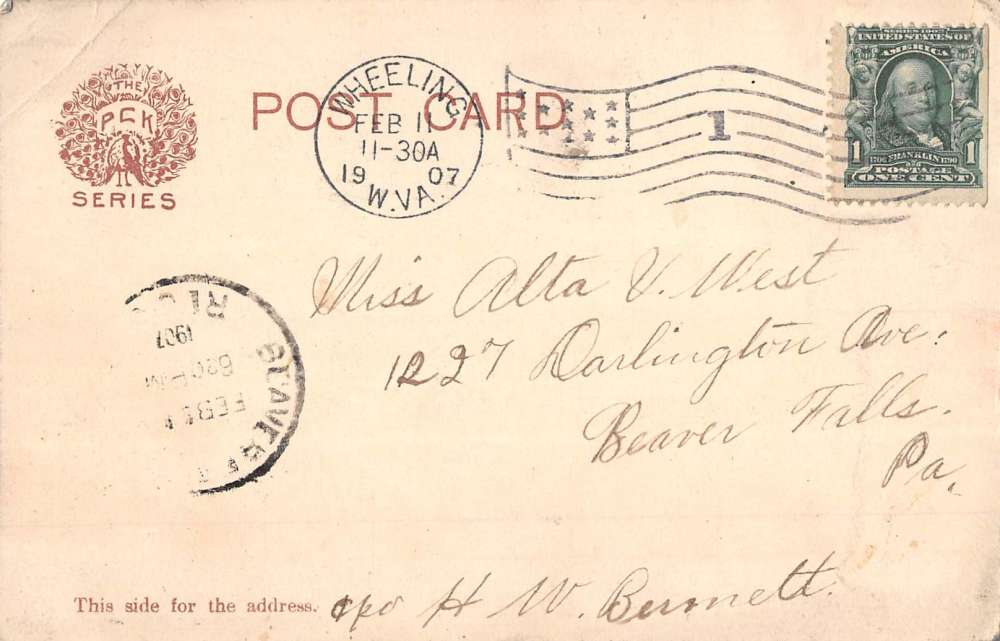 THE
P C K
SERIES
POST CARD
WHEELING
FEB 11
11-30A
19 07
W.VA.
1
SERIES 1902
UNITED STATES OF
AMERICA
1 1706 FRANKLIN 1790 1
POSTAGE
ONE CENT
Miss Alta V. West
1227 Darlington Ave.
Beaver Falls.
Pa.
BEAVER
FEB
1907
This side for the address. c/o H W. Bennett.